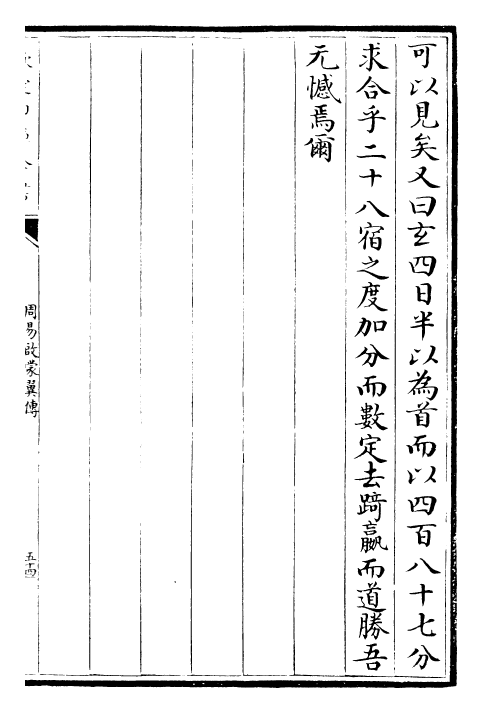 可以見矣又曰玄四日半以為首而以四百八十七分
求合乎二十八宿之度加分而數定去踦嬴而道勝吾
无憾焉爾
周易啟蒙翼傳
五十四